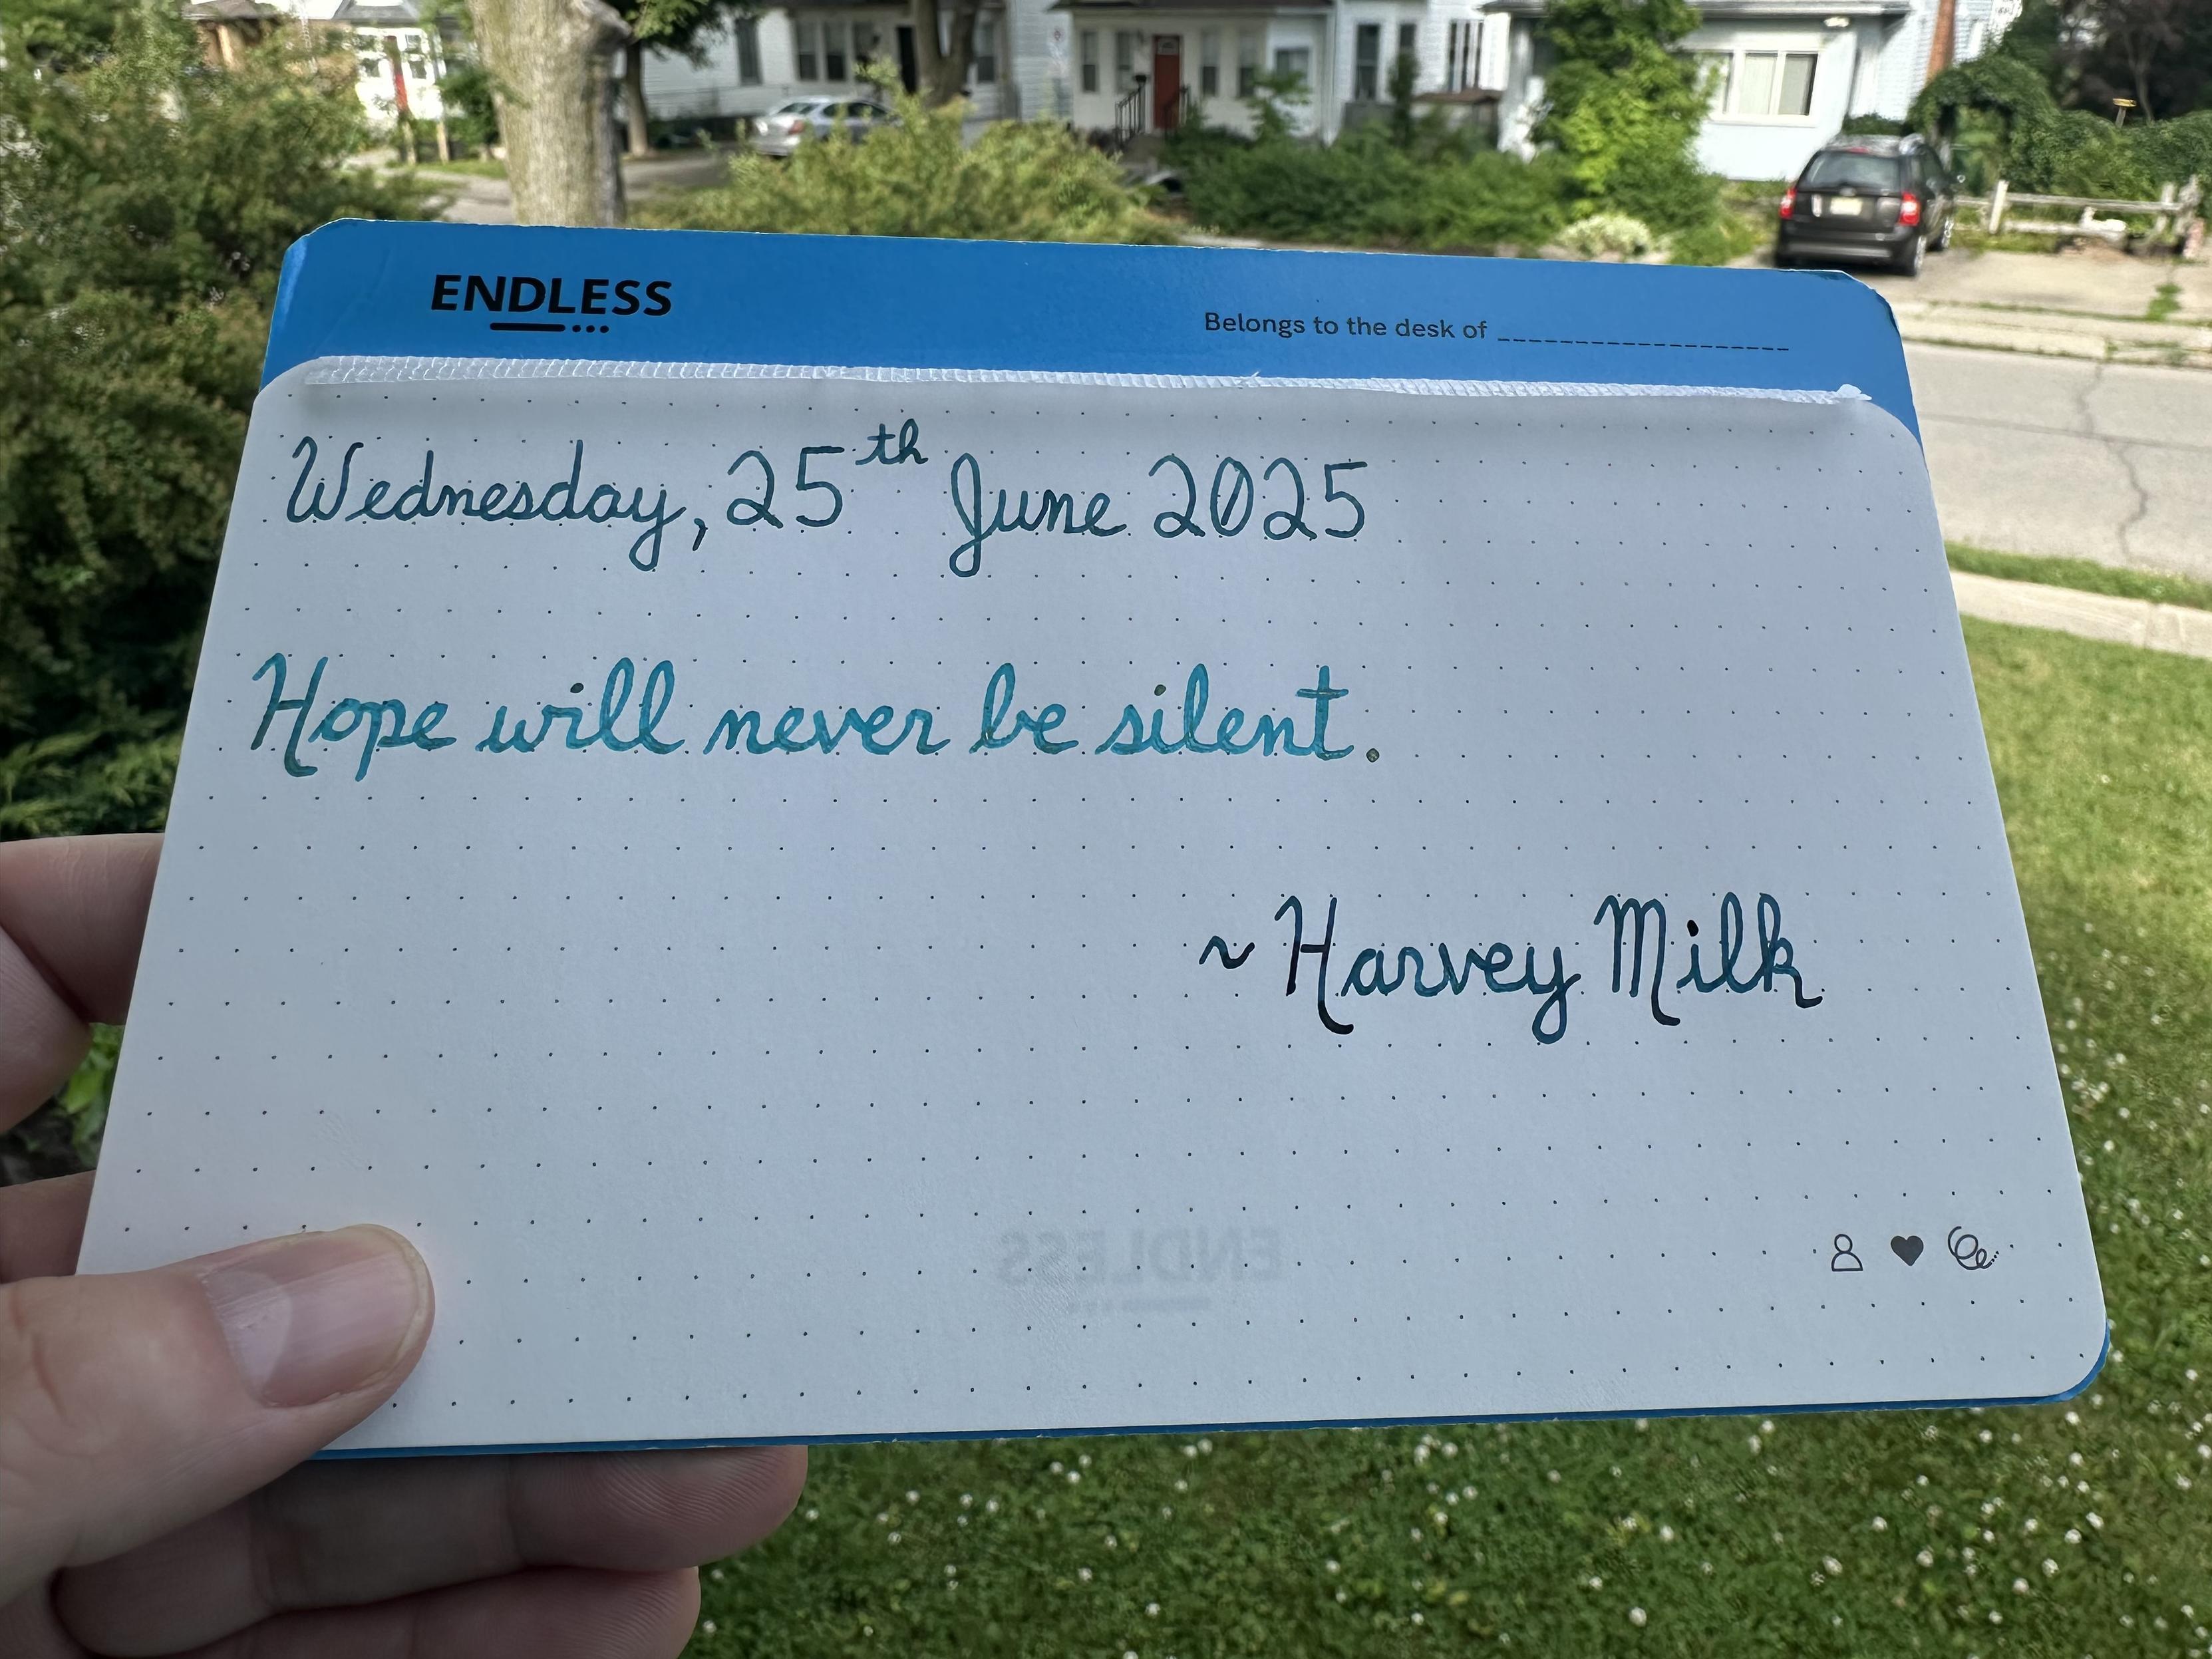 ENDLESS
Belongs to the desk of ___________________
Wednesday, 25th June 2025
Hope will never be silent.
~ Harvey Milk
ENDLESS